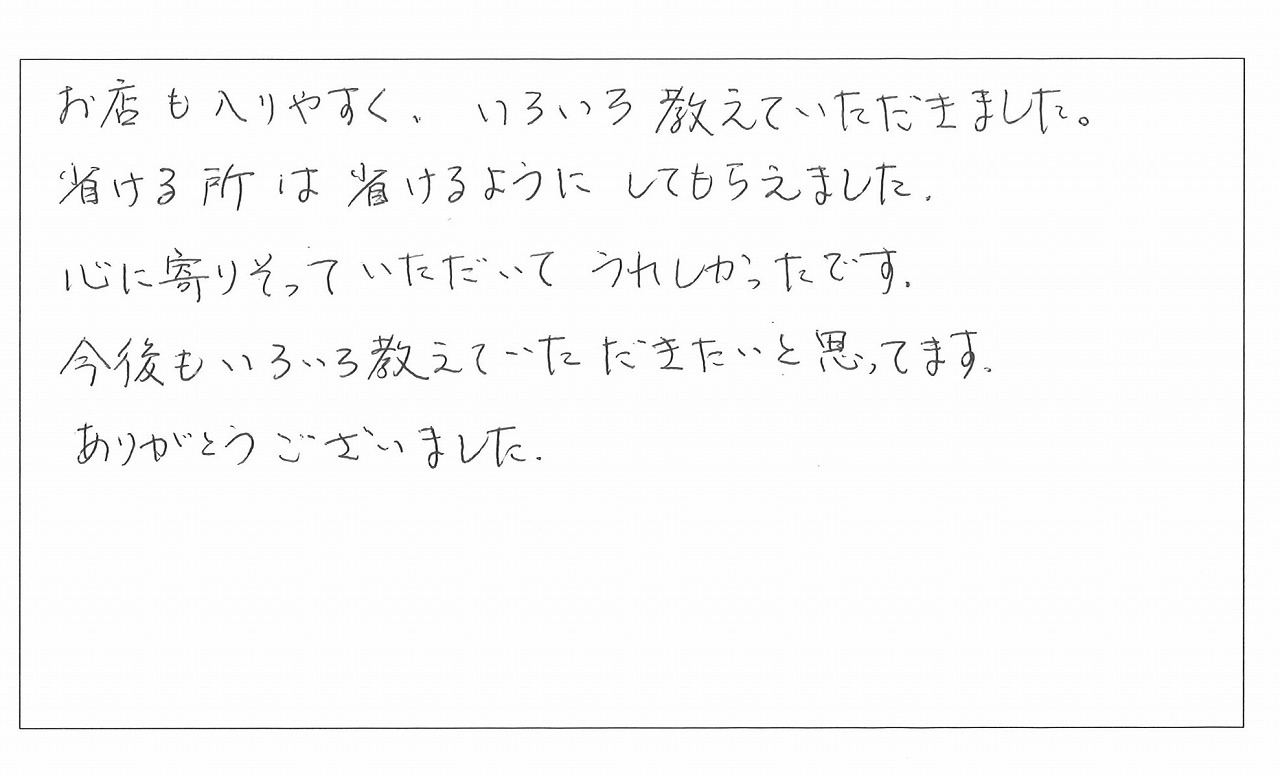 お店も入りやすく、いろいろ教えていただきました。
省ける所は省けるようにしてもらえました.
心に寄りそっていただいてうれしかったです.
今後もいろいろ教えていただきたいと思ってます.
ありがとうございました.